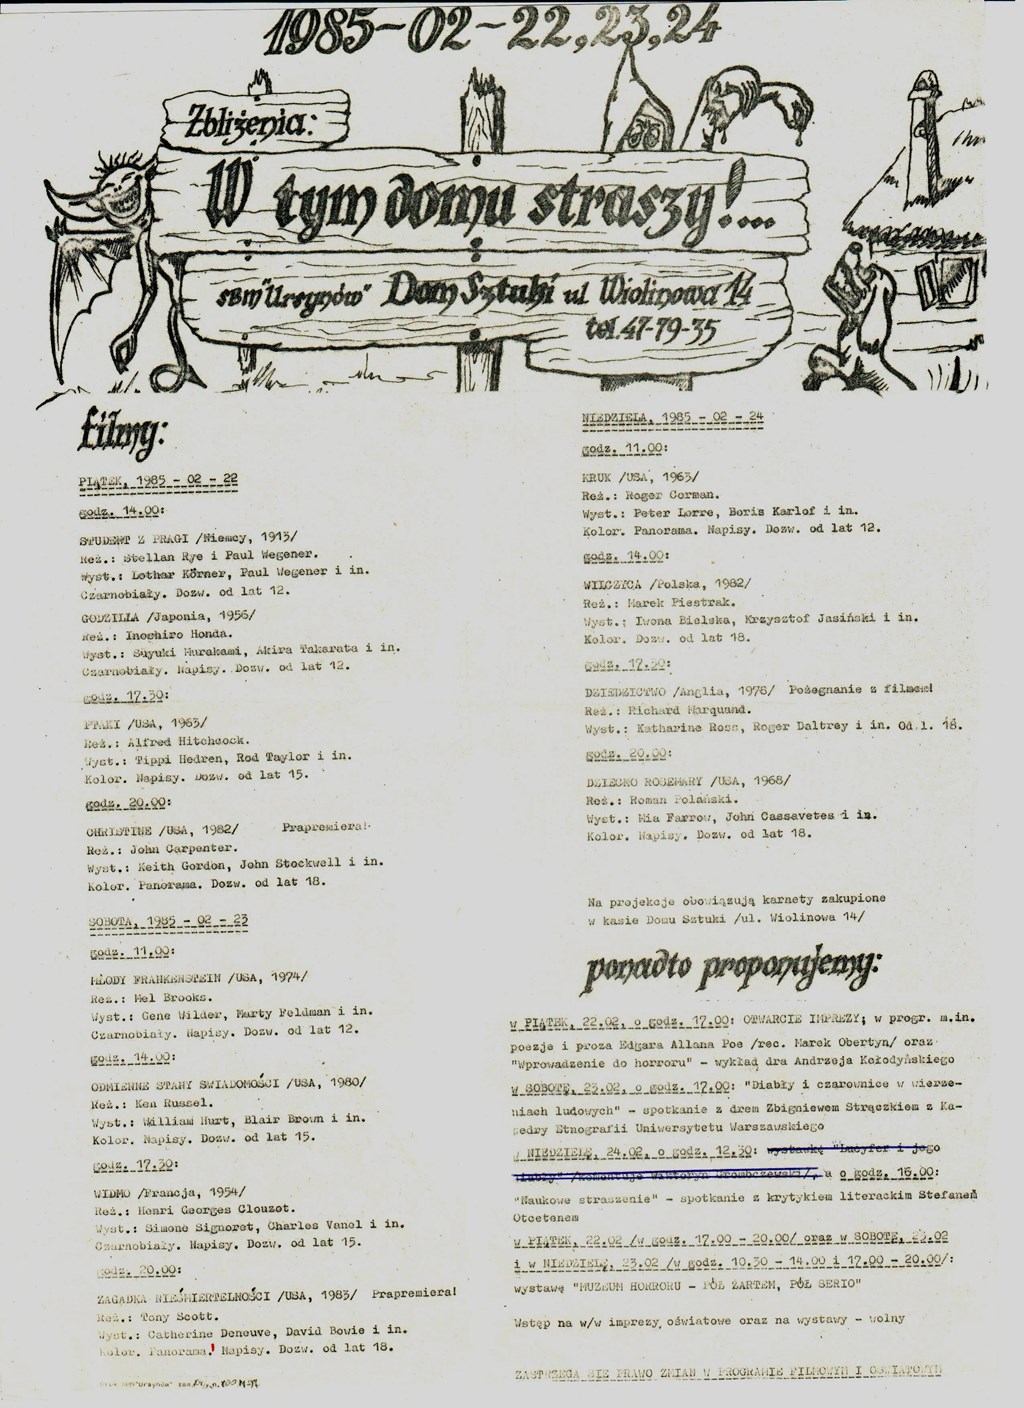 1985-02-22,23,24
Zbliżenia:
W tym domu straszy!...
SBM "Ursynów" Dom Sztuki ul Wiolinowa 14
tel. 47-79-35
filmy:
PIĄTEK, 1985 - 02 - 22
godz. 14.00:
STUDENT Z PRAGI /Niemcy, 1913/
Reż.: Stellan Rye i Paul Wegener.
Wyst.: Lothar Körner, Paul Wegener i in.
Czarnobiały. Dozw. od lat 12.
GODZILLA /Japonia, 1956/
Reż.: Inoshiro Honda.
Wyst.: Suyuki Murakami, Akira Takarata i in.
Czarnobiały. Napisy. Dozw. od lat 12.
godz. 17.30:
PTAKI /USA, 1963/
Reż.: Alfred Hitchcock.
Wyst.: Tippi Hedren, Rod Taylor i in.
Kolor. Napisy. Dozw. od lat 15.
godz. 20.00:
CHRISTINE /USA, 1982/ Prapremiera!
Reż.: John Carpenter.
Wyst.: Keith Gordon, John Stockwell i in.
Kolor. Panorama. Dozw. od lat 18.
SOBOTA, 1985 - 02 - 23
godz. 11.00:
MŁODY FRANKENSTEIN /USA, 1974/
Reż.: Mel Brooks.
Wyst.: Gene Wilder, Marty Feldman i in.
Czarnobiały. Napisy. Dozw. od lat 12.
godz. 14.00:
ODMIENNE STANY ŚWIADOMOŚCI /USA, 1980/
Reż.: Ken Russel.
Wyst.: William Hurt, Blair Brown i in.
Kolor. Napisy. Dozw. od lat 15.
godz. 17.30:
WIDMO /Francja, 1954/
Reż.: Henri Georges Clouzot.
Wyst.: Simone Signoret, Charles Vanel i in.
Czarnobiały. Napisy. Dozw. od lat 15.
godz. 20.00:
ZAGADKA NIEŚMIERTELNOŚCI /USA, 1983/ Prapremiera!
Reż.: Tony Scott.
Wyst.: Catherine Deneuve, David Bowie i in.
Kolor. Panorama. Napisy. Dozw. od lat 18.
NIEDZIELA, 1985 - 02 - 24
godz. 11.00:
KRUK /USA, 1963/
Reż.: Roger Corman.
Wyst.: Peter Lorre, Boris Karlof i in.
Kolor. Panorama. Napisy. Dozw. od lat 12.
godz. 14.00:
WILCZYCA /Polska, 1982/
Reż.: Marek Piestrak.
Wyst.: Iwona Bielska, Krzysztof Jasiński i in.
Kolor. Dozw. od lat 18.
godz. 17.30:
DZIEDZICTWO /Anglia, 1978/ Pożegnanie z filmem!
Reż.: Richard Marquand.
Wyst.: Katharine Ross, Roger Daltrey i in. Od l. 18.
godz. 20.00:
DZIECKO ROSEMARY /USA, 1968/
Reż.: Roman Polański.
Wyst.: Mia Farrow, John Cassavetes i in.
Kolor. Napisy. Dozw. od lat 18.
Na projekcje obowiązują karnety zakupione
w kasie Domu Sztuki /ul. Wiolinowa 14/
ponadto proponujemy:
w PIĄTEK, 22.02, o godz. 17.00: OTWARCIE IMPREZY; w progr. m.in.
poezje i proza Edgara Allana Poe /rec. Marek Obertyn/ oraz
"Wprowadzenie do horroru" - wykład dra Andrzeja Kołodyńskiego
w SOBOTĘ, 23.02, o godz. 17.00: "Diabły i czarownice w wierze-
niach ludowych" - spotkanie z drem Zbigniewem Strączkiem z Ka-
tedry Etnografii Uniwersytetu Warszawskiego
w NIEDZIELĘ, 24.02, o godz. 12.30: wystawkę "Lucyfer i jego
diabły" /komentuje Wiktoryn Grombczewski/, a o godz. 16.00:
"Naukowe straszenie" - spotkanie z krytykiem literackim Stefanem
Otcetenem
w PIĄTEK, 22.02 /w godz. 17.00 - 20.00/ oraz w SOBOTĘ, 23.02
i w NIEDZIELĘ, 23.02 /w godz. 10.30 - 14.00 i 17.00 - 20.00/:
wystawę "MUZEUM HORRORU - PÓŁ ŻARTEM, PÓŁ SERIO"
Wstęp na w/w imprezy oświatowe oraz na wystawy - wolny
ZASTRZEGA SIĘ PRAWO ZMIAN W PROGRAMIE FILMOWYM I OŚWIATOWYM